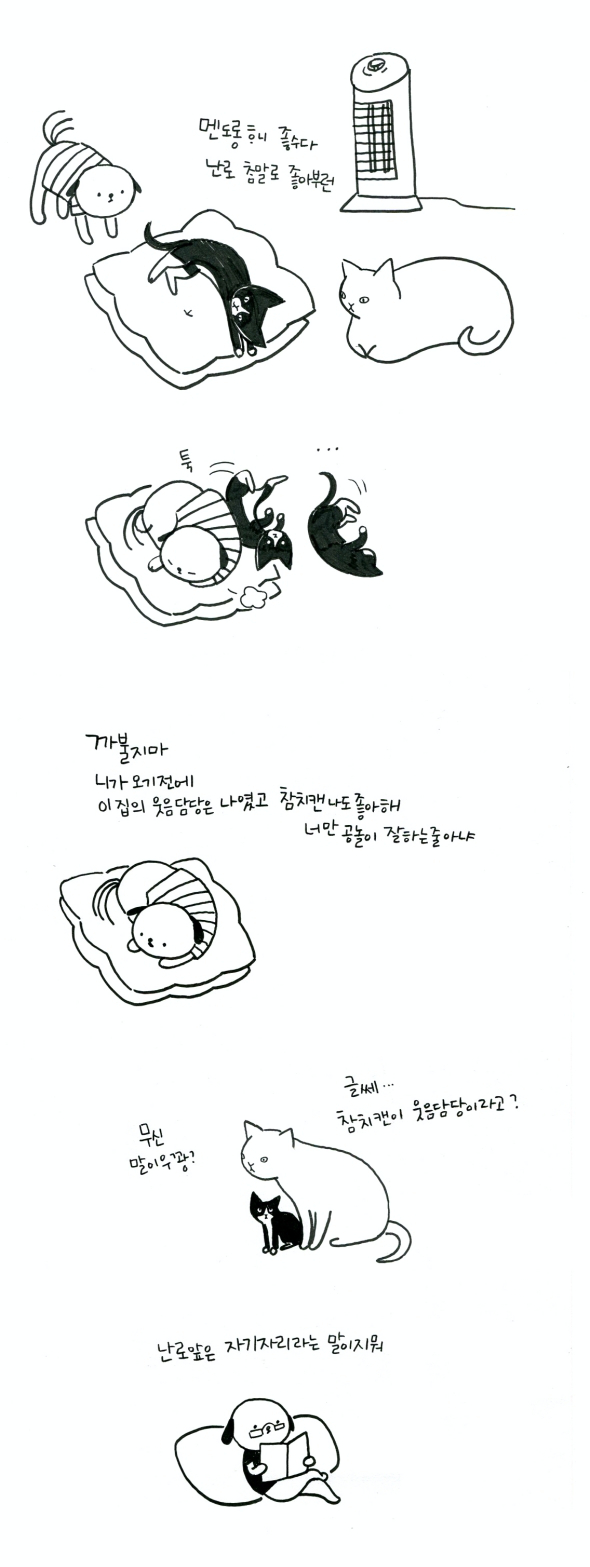 멘도롱 ᄒᆞ니 좋수다
난로 참말로 좋아부런
툭
...
까불지마
니가 오기전에
이 집의 웃음담당은 나였고 참치캔 나도 좋아해
너만 공놀이 잘하는줄아냐
글쎄...
참치캔이 웃음담당이라고?
무신
말이우꽝?
난로앞은 자기자리라는 말이지뭐